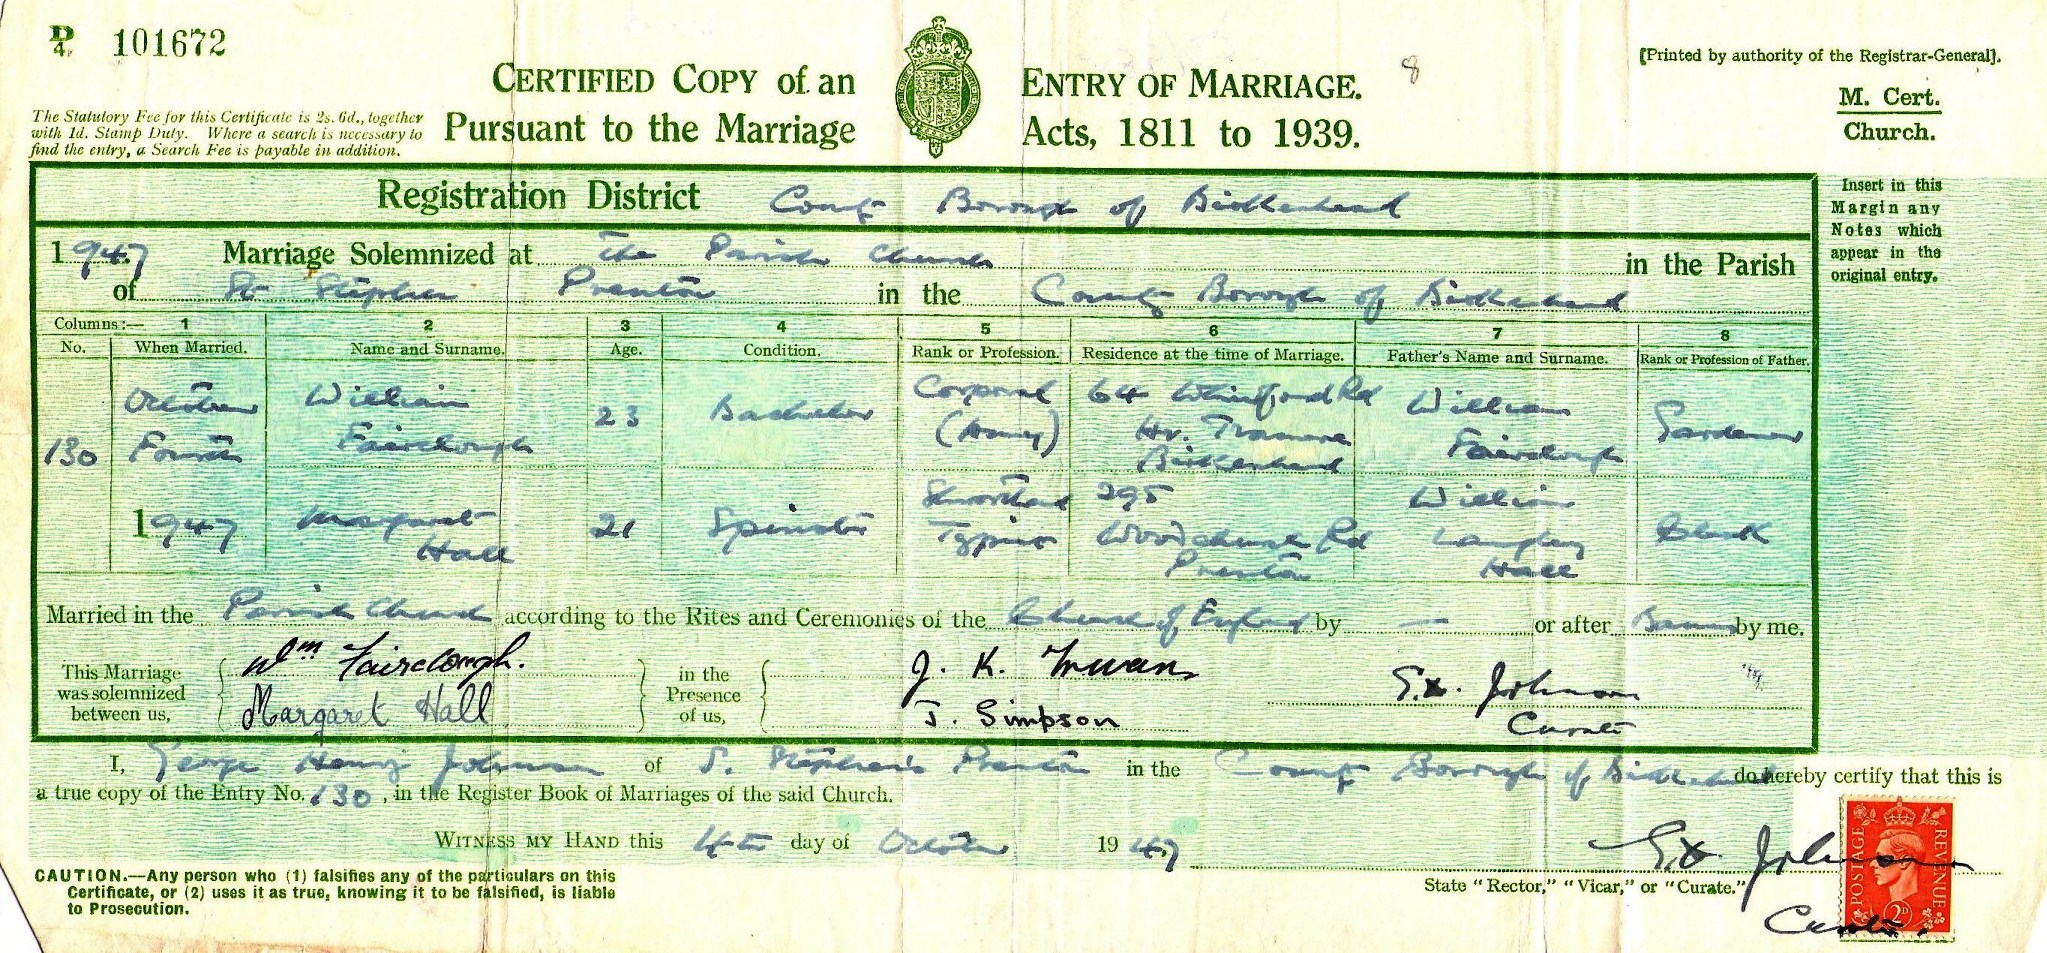 D
4. 101672
8
[Printed by authority of the Registrar-General].
CERTIFIED COPY of an ENTRY OF MARRIAGE.
Pursuant to the Marriage Acts, 1811 to 1939.
M. Cert.
Church.
The Statutory Fee for this Certificate is 2s. 6d., together
with 1d. Stamp Duty. Where a search is necessary to
find the entry, a Search Fee is payable in addition.
Registration District County Borough of Birkenhead
Insert in this
Margin any
Notes which
appear in the
original entry.
1947 Marriage Solemnized at The Parish Church in the Parish
of St Stephen Prenton in the County Borough of Birkenhead
Columns :— 1 2 3 4 5 6 7 8
No. When Married. Name and Surname. Age. Condition. Rank or Profession. Residence at the time of Marriage. Father's Name and Surname. Rank or Profession of Father.
130
October
Fourth
1947
William
Fairclough
23
Bachelor
Corporal
(Army)
64 Rd
Hr. Tranmere
Birkenhead
William
Fairclough
Gardener
Margaret
Hall
21
Spinster
Shorthand
Typist
295
Woodchurch Rd
Prenton
William
Langley
Hall
Clerk
Married in the Parish Church according to the Rites and Ceremonies of the Church of England by — or after Banns by me.
This Marriage
was solemnized
between us,
Wm Fairclough.
Margaret Hall
in the
Presence
of us,
J. K.
J. Simpson
G.H. Johnson
Curate
I, George Henry Johnson of S. Stephen's Prenton in the County Borough of Birkenhead do hereby certify that this is
a true copy of the Entry No. 130, in the Register Book of Marriages of the said Church.
WITNESS MY HAND this 4th day of October 1947
G.H. Johnson
State "Rector," "Vicar," or "Curate."
Curate.
CAUTION.—Any person who (1) falsifies any of the particulars on this
Certificate, or (2) uses it as true, knowing it to be falsified, is liable
to Prosecution.
POSTAGE REVENUE
2D